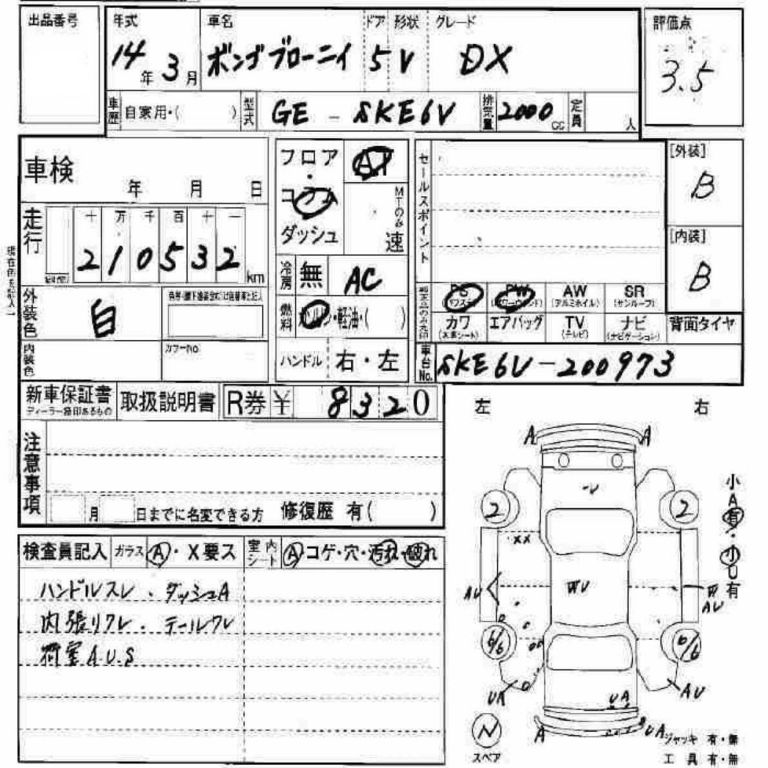 出品番号
年式 車名 ドア 形状 グレード
14年 3月 ボンゴブローニイ 5 V DX
評価点
3.5
車歴 自家用・( ) 型式 GE - SKE6V 排気量 2000cc 定員 人
車検 年 月 日
走行 十 万 千 百 十 一
210532 km
外装色 白
内装色 カラーNo.
フロア・コラム・ダッシュ AT
MTのみ 速
冷房 無 AC
燃料 ガソリン・軽油・( )
ハンドル 右・左
セールスポイント
[外装]
B
[内装]
B
PS (パワステ) PW (パワーウィンド) AW (アルミホイル) SR (サンルーフ)
カワ (本革シート) エアバッグ TV (テレビ) ナビ (ナビゲーション) 背面タイヤ
車台No. SKE6V-200973
新車保証書 ディーラー捺印あるもの 取扱説明書 R券 ¥ 8320
注意事項
月 日までに名変できる方 修復歴 有( )
検査員記入 ガラス A・X要ス 室内シート A・コゲ・穴・汚れ・破れ
ハンドルスレ・ダッシュA
内張りワレ・テールワレ
荷室A.U.S
左 右
A A
-U
2 2
xx
小A有・小U有
AU WU W AU
6/6 6/6
UA UA AU
A UA
N スペア
ジャッキ 有・無
工具 有・無